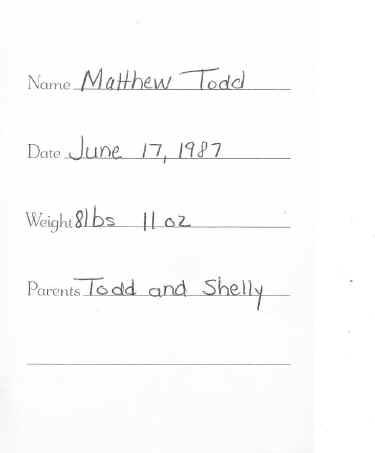 Name Matthew Todd
Date June 17, 1987
Weight 8lbs 11 oz
Parents Todd and Shelly